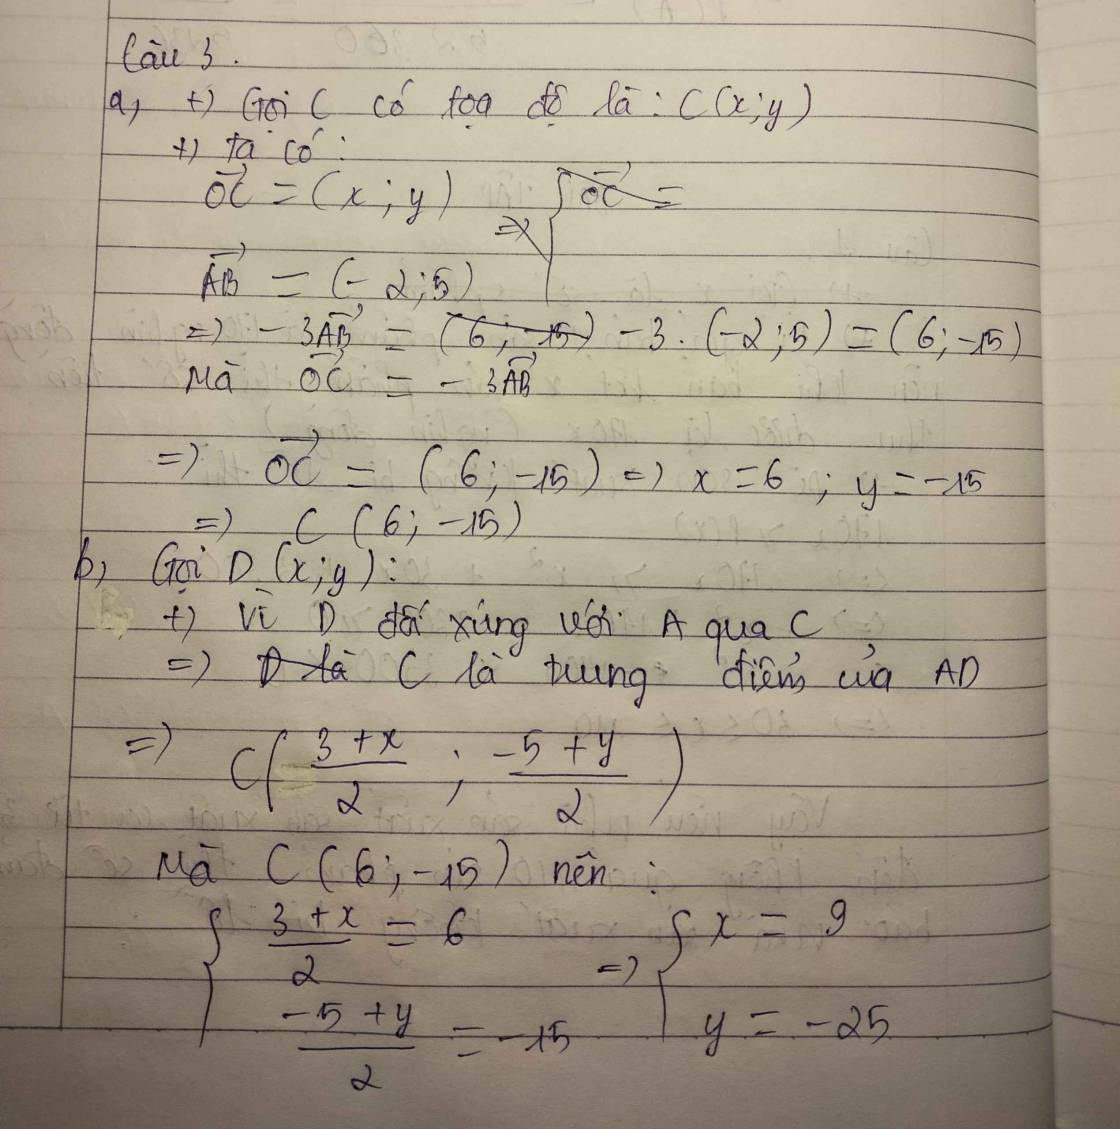 Câu 3.
a, +) Gọi C có tọa độ là: C(x;y)
+) ta có:
OC = (x;y) => { OC =
AB = (-2;5)
=> -3AB = (6;-15) -3.(-2;5) = (6;-15)
Mà OC = -3AB
=> OC = (6;-15) => x=6; y=-15
=> C (6;-15)
b, Gọi D (x;y):
+) Vì D đối xứng với A qua C
=> D là C là trung điểm của AD
=> C( (3+x)/2 ; (-5+y)/2 )
Mà C (6;-15) nên:
{ (3+x)/2 = 6 => { x = 9
(-5+y)/2 = -15 y = -25